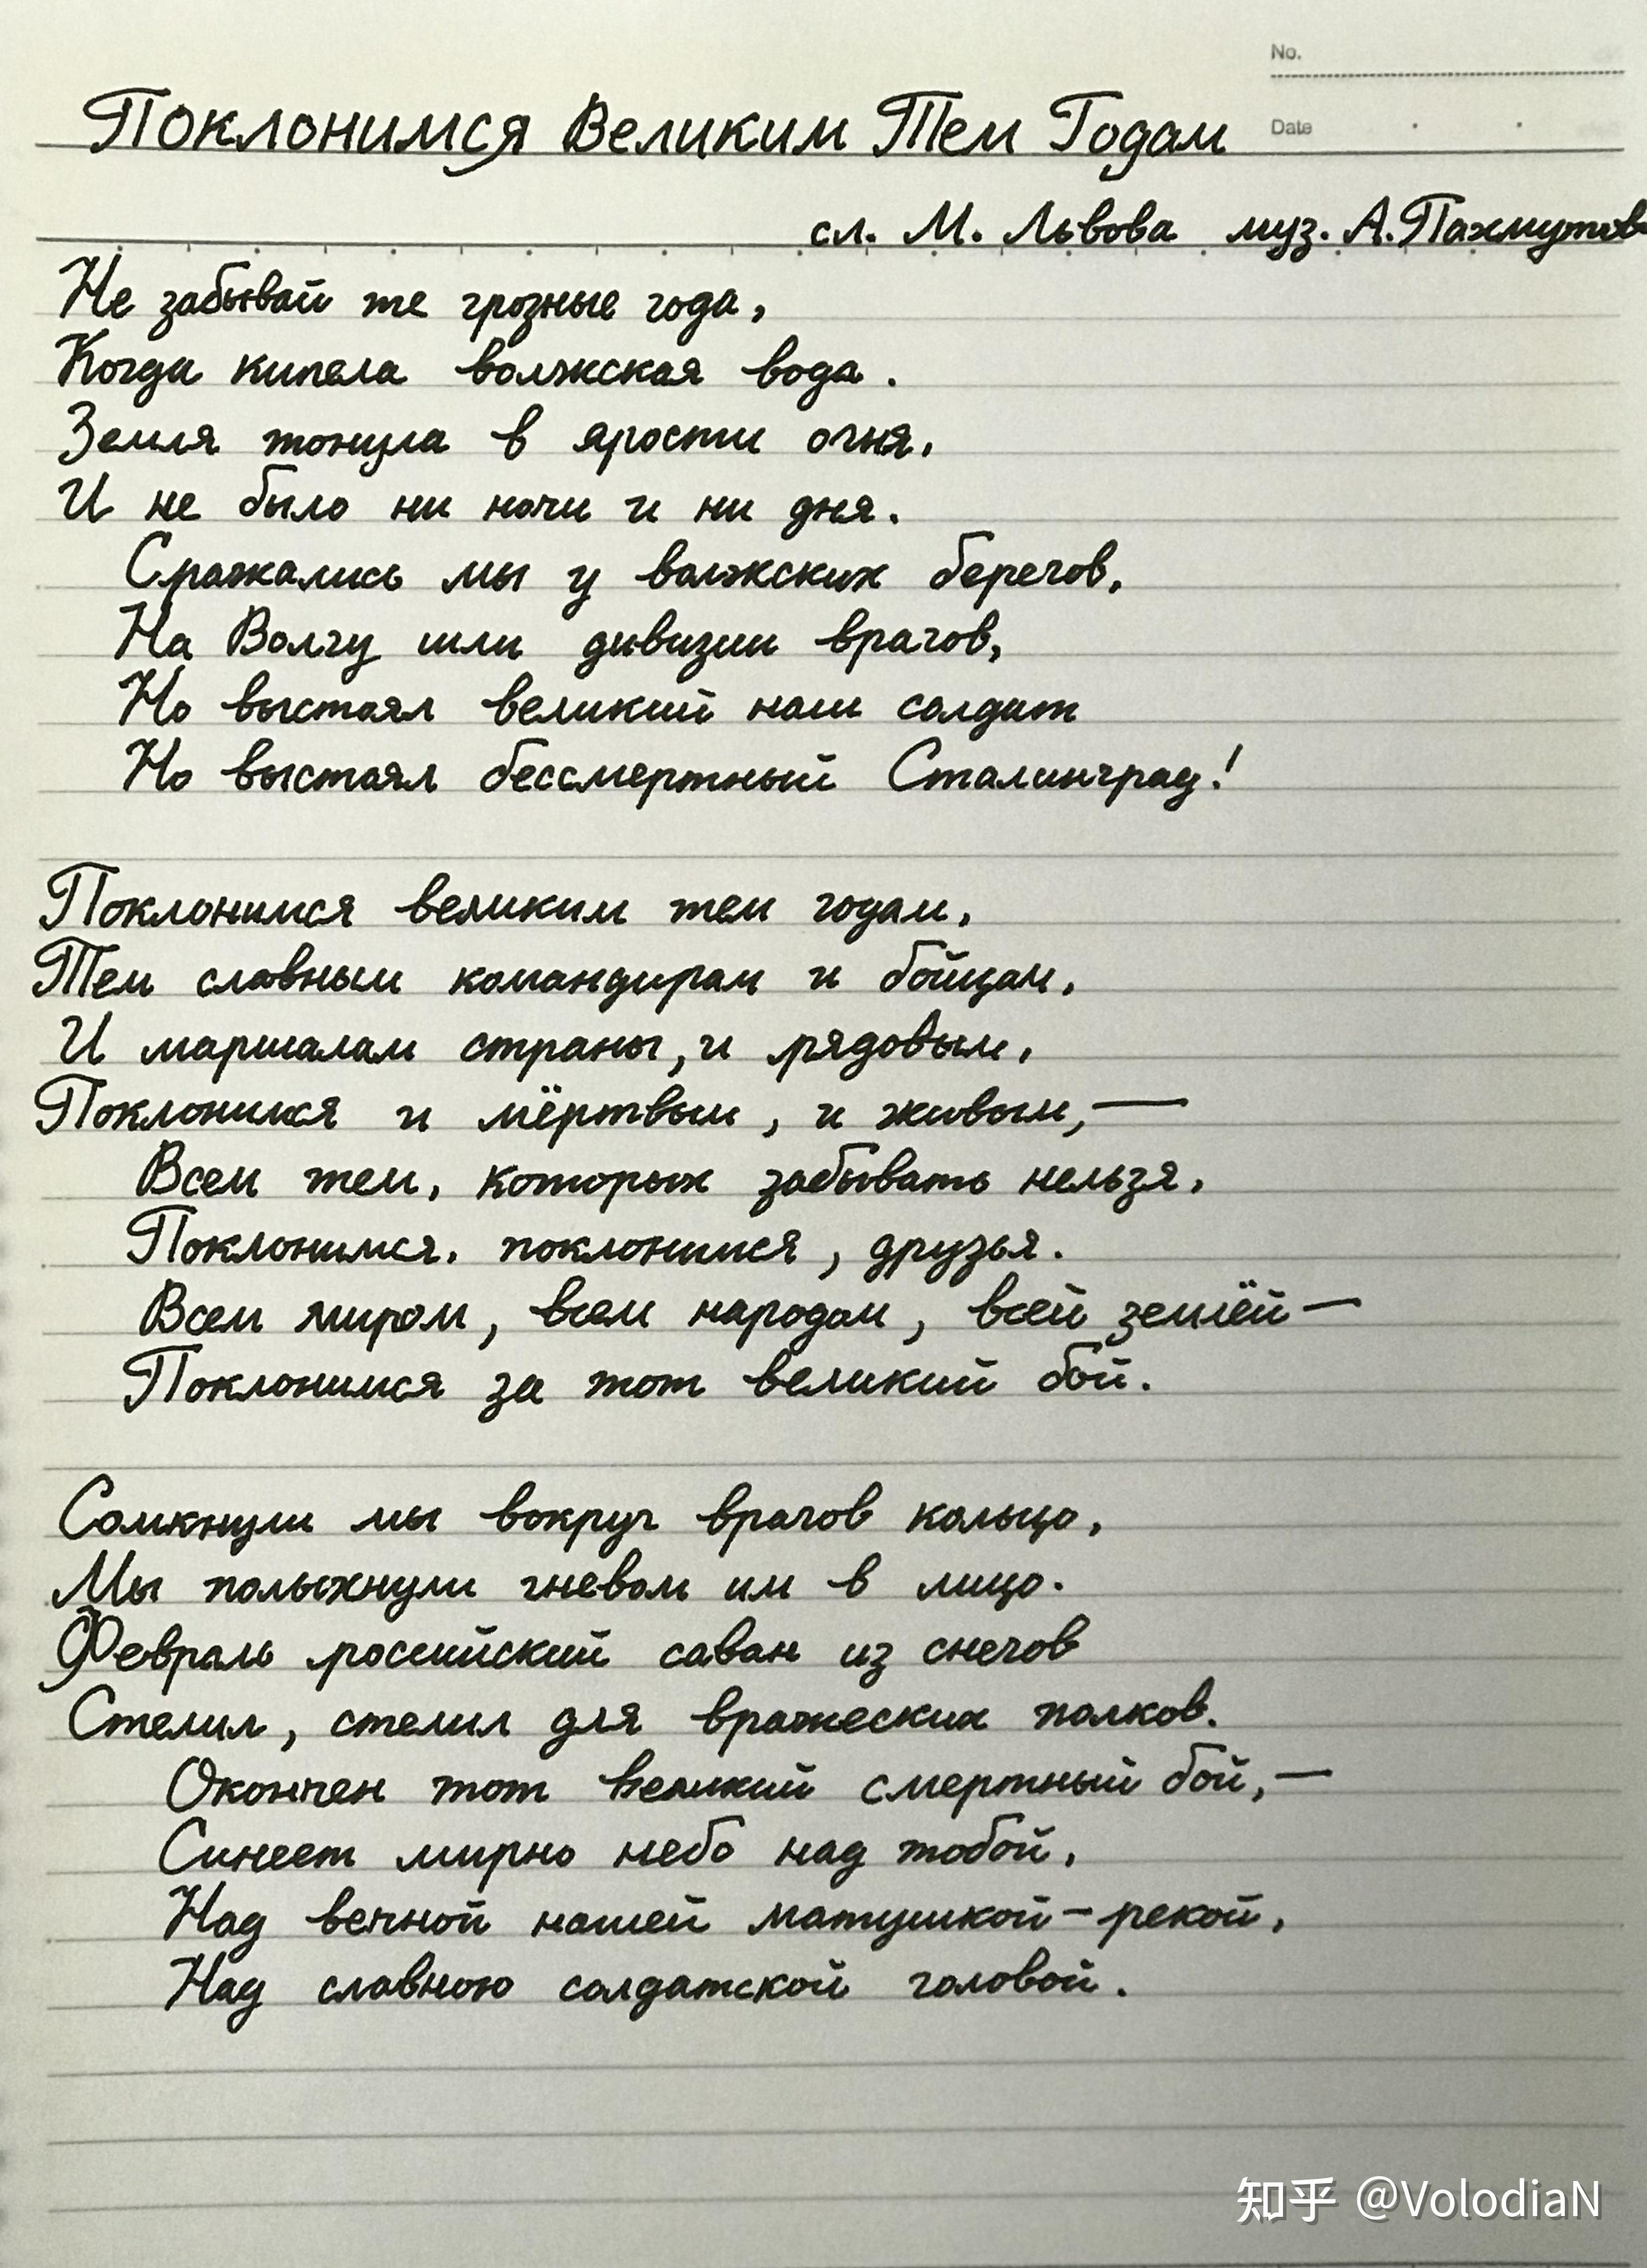 No.
Поклонимся Великим Тем Годам
Date
сл. М. Львова муз. А. Пахмутов
Не забывай те грозные года,
Когда кипела волжская вода.
Земля тонула в ярости огня,
И не было ни ночи и ни дня.
Сражались мы у волжских берегов,
На Волгу шли дивизии врагов,
Но выстоял великий наш солдат
Но выстоял бессмертный Сталинград!
Поклонимся великим тем годам,
Тем славным командирам и бойцам,
И маршалам страны, и рядовым,
Поклонимся и мёртвым, и живым,—
Всем тем, которых забывать нельзя,
Поклонимся, поклонимся, друзья.
Всем миром, всем народом, всей землёй—
Поклонимся за тот великий бой.
Сомкнули мы вокруг врагов кольцо,
Мы полыхнули гневом им в лицо.
Февраль российский саван из снегов
Стелил, стелил для вражеских полков.
Окончен тот великий смертный бой,—
Синеет мирно небо над тобой,
Над вечной нашей матушкой-рекой,
Над славною солдатской головой.
知乎 @VolodiaN